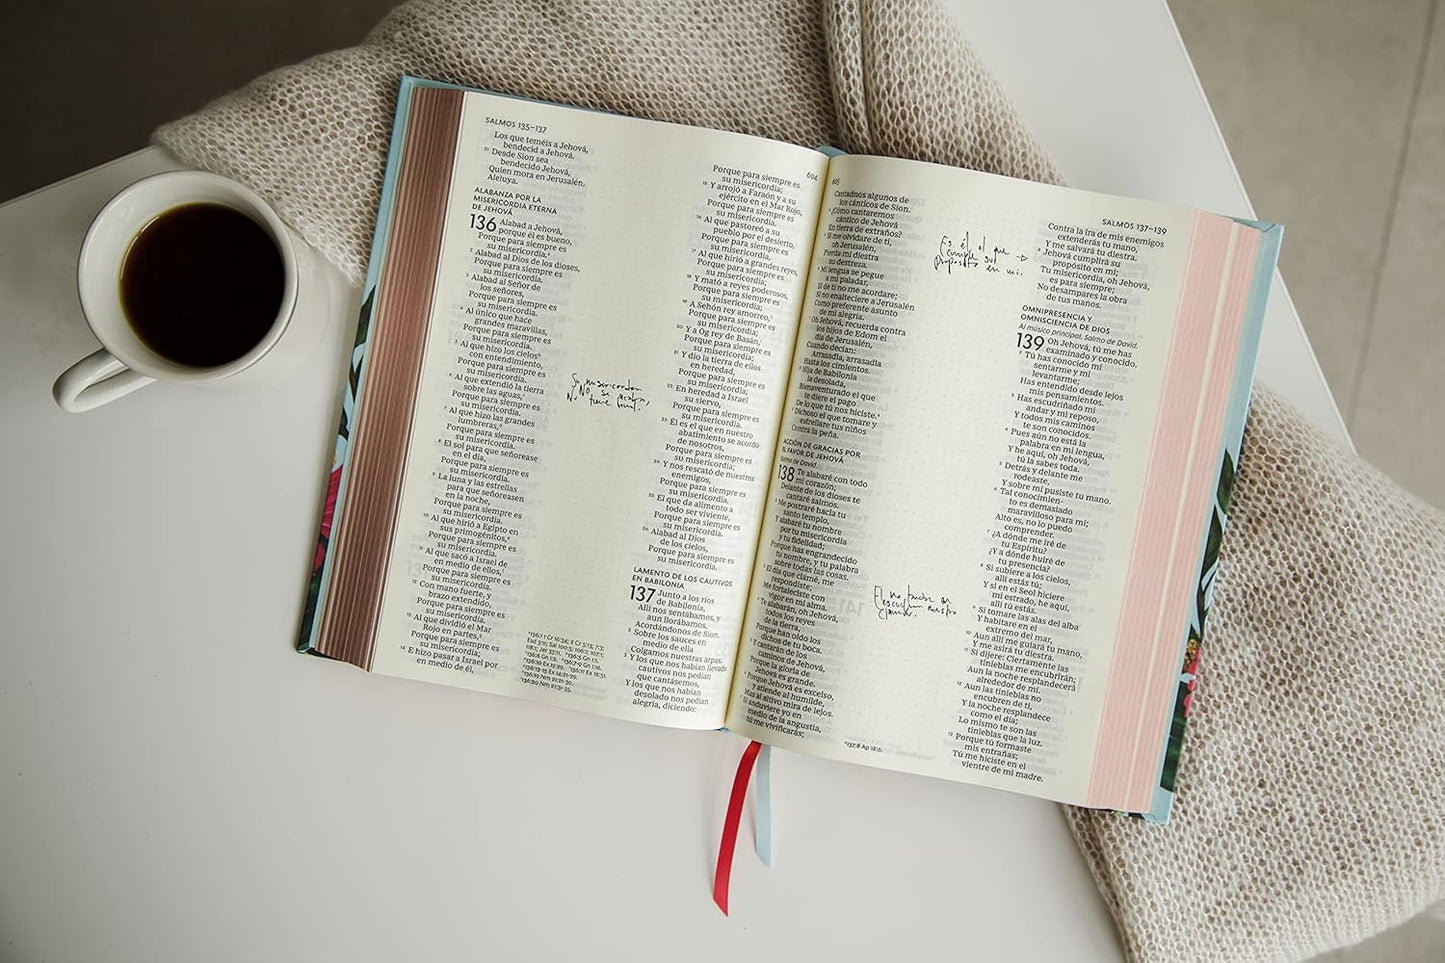 SALMOS 135–137
Los que teméis a Jehová,
bendecid a Jehová.
21 Desde Sion sea
bendecido Jehová,
Quien mora en Jerusalén.
Aleluya.
ALABANZA POR LA
MISERICORDIA ETERNA
DE JEHOVÁ
136 Alabad a Jehová,
porque él es bueno,
Porque para siempre es
su misericordia.
2 Alabad al Dios de los dioses,
Porque para siempre es
su misericordia.
3 Alabad al Señor de
los señores,
Porque para siempre es
su misericordia.
4 Al único que hace
grandes maravillas,
Porque para siempre es
su misericordia.
5 Al que hizo los cielos
con entendimiento,
Porque para siempre es
su misericordia.
6 Al que extendió la tierra
sobre las aguas,
Porque para siempre es
su misericordia.
7 Al que hizo las grandes
lumbreras,
Porque para siempre es
su misericordia.
8 El sol para que señorease
en el día,
Porque para siempre es
su misericordia.
9 La luna y las estrellas
para que señoreasen
en la noche,
Porque para siempre es
su misericordia.
10 Al que hirió a Egipto en
sus primogénitos,
Porque para siempre es
su misericordia.
11 Al que sacó a Israel de
en medio de ellos,
Porque para siempre es
su misericordia.
12 Con mano fuerte, y
brazo extendido,
Porque para siempre es
su misericordia.
13 Al que dividió el Mar
Rojo en partes,
Porque para siempre es
su misericordia;
14 E hizo pasar a Israel por
en medio de él,
604
Porque para siempre es
su misericordia;
15 Y arrojó a Faraón y a su
ejército en el Mar Rojo,
Porque para siempre es
su misericordia.
16 Al que pastoreó a su
pueblo por el desierto,
Porque para siempre es
su misericordia.
17 Al que hirió a grandes reyes,
Porque para siempre es
su misericordia;
18 Y mató a reyes poderosos,
Porque para siempre es
su misericordia;
19 A Sehón rey amorreo,
Porque para siempre es
su misericordia;
20 Y a Og rey de Basán,
Porque para siempre es
su misericordia;
21 Y dio la tierra de ellos
en heredad,
Porque para siempre es
su misericordia;
22 En heredad a Israel
su siervo,
Porque para siempre es
su misericordia.
23 El es el que en nuestro
abatimiento se acordó
de nosotros,
Porque para siempre es
su misericordia;
24 Y nos rescató de nuestros
enemigos,
Porque para siempre es
su misericordia.
25 El que da alimento a
todo ser viviente,
Porque para siempre es
su misericordia.
26 Alabad al Dios
de los cielos,
Porque para siempre es
su misericordia.
LAMENTO DE LOS CAUTIVOS
EN BABILONIA
137 Junto a los ríos
de Babilonia,
Allí nos sentábamos, y
aun llorábamos,
Acordándonos de Sion.
2 Sobre los sauces en
medio de ella
Colgamos nuestras arpas.
3 Y los que nos habían llevado
cautivos nos pedían
que cantásemos,
Y los que nos habían
desolado nos pedían
alegría, diciendo:
Su misericordia
615
Cantadnos algunos de
los cánticos de Sion.
4 ¿Cómo cantaremos
cántico de Jehová
En tierra de extraños?
5 Si me olvidare de ti,
oh Jerusalén,
Pierda mi diestra
su destreza.
6 Mi lengua se pegue
a mi paladar,
Si de ti no me acordare;
Si no enalteciere a Jerusalén
Como preferente asunto
de mi alegría.
7 Oh Jehová, recuerda contra
los hijos de Edom el
día de Jerusalén,
Cuando decían:
Arrasadla, arrasadla
Hasta los cimientos.
8 Hija de Babilonia
la desolada,
Bienaventurado el que
te diere el pago
De lo que tú nos hiciste.
9 Dichoso el que tomare y
estrellare tus niños
Contra la peña.
ACCIÓN DE GRACIAS POR
EL FAVOR DE JEHOVÁ
Salmo de David.
138 Te alabaré con todo
mi corazón;
Delante de los dioses te
cantaré salmos.
2 Me postraré hacia tu
santo templo,
Y alabaré tu nombre
por tu misericordia
y tu fidelidad;
Porque has engrandecido
tu nombre, y tu palabra
sobre todas las cosas.
3 El día que clamé, me
respondiste;
Me fortaleciste con
vigor en mi alma.
4 Te alabarán, oh Jehová,
todos los reyes
de la tierra,
Porque han oído los
dichos de tu boca.
5 Y cantarán de los
caminos de Jehová,
Porque la gloria de
Jehová es grande.
6 Porque Jehová es excelso,
y atiende al humilde,
Mas al altivo mira de lejos.
7 Si anduviere yo en
medio de la angustia,
tú me vivificarás;
Es él el que
cumple su
propósito en mi.
*137:8 Ap 18:6.
SALMOS 137–139
Contra la ira de mis enemigos
extenderás tu mano,
Y me salvará tu diestra.
8 Jehová cumplirá su
propósito en mí;
Tu misericordia, oh Jehová,
es para siempre;
No desampares la obra
de tus manos.
OMNIPRESENCIA Y
OMNISCIENCIA DE DIOS
Al músico principal. Salmo de David.
139 Oh Jehová, tú me has
examinado y conocido.
2 Tú has conocido mi
sentarme y mi
levantarme;
Has entendido desde lejos
mis pensamientos.
3 Has escudriñado mi
andar y mi reposo,
Y todos mis caminos
te son conocidos.
4 Pues aún no está la
palabra en mi lengua,
Y he aquí, oh Jehová,
tú la sabes toda.
5 Detrás y delante me
rodeaste,
Y sobre mí pusiste tu mano.
6 Tal conocimien-
to es demasiado
maravilloso para mí;
Alto es, no lo puedo
comprender.
7 ¿A dónde me iré de
tu Espíritu?
¿Y a dónde huiré de
tu presencia?
8 Si subiere a los cielos,
allí estás tú;
Y si en el Seol hiciere
mi estrado, he aquí,
allí tú estás.
9 Si tomare las alas del alba
Y habitare en el
extremo del mar,
10 Aun allí me guiará tu mano,
Y me asirá tu diestra.
11 Si dijere: Ciertamente las
tinieblas me encubrirán;
Aun la noche resplandecerá
alrededor de mí.
12 Aun las tinieblas no
encubren de ti,
Y la noche resplandece
como el día;
Lo mismo te son las
tinieblas que la luz.
13 Porque tú formaste
mis entrañas;
Tú me hiciste en el
vientre de mi madre.